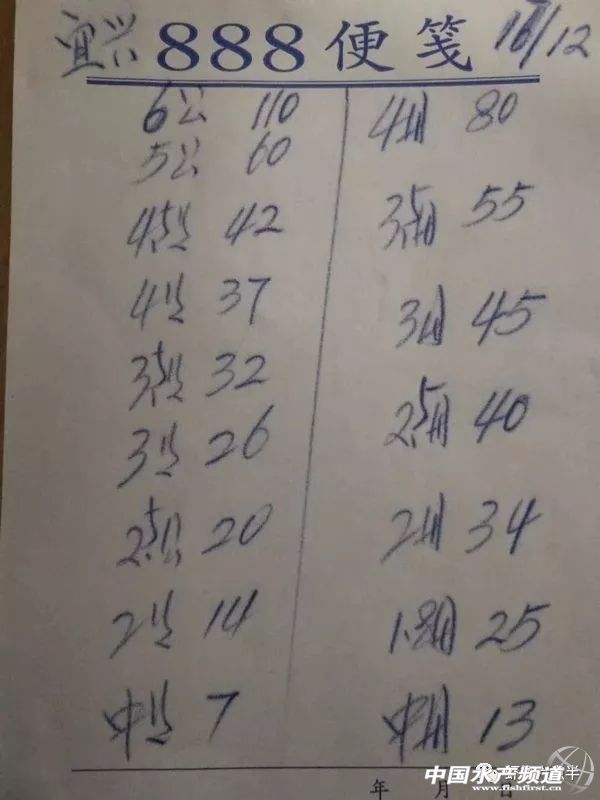 宜兴 888便笺 16/12
6公 110
5公 60
4.5公 42
4公 37
3.5公 32
3公 26
2.5公 20
2公 14
中公 7
4母 80
3.5母 55
3母 45
2.5母 40
2母 34
1.8母 25
中母 13
年 月 日
中国水产频道
www.fishfirst.cn